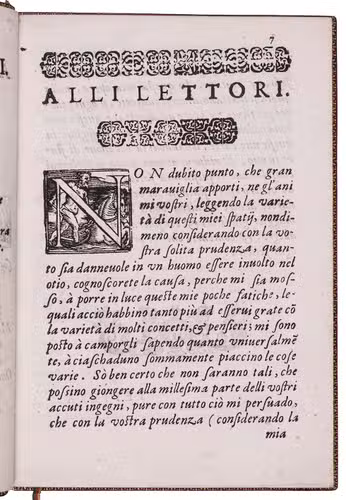 7
ALLI LETTORI.
NON dubito punto, che gran
maraviglia apporti, ne gl'ani
mi vostri, leggendo la varie-
tà di questi miei spatij, nondi-
meno considerando con la vo-
stra solita prudenza, quan-
to sia dannevole in vn huomo essere inuolto nel
otio, cognoscorete la causa, perche mi sia mos-
so, à porre in luce queste mie poche fatiche, le-
quali acciò habbino tanto più ad esserui grate cõ
la varietà di molti concetti, & pensieri; mi sono
posto à camporgli sapendo quanto vniuersalmẽ
te, à ciaschaduno sommamente piaccino le cose
varie. Sò ben certo che non saranno tali, che
possino giongere alla millesima parte delli vostri
accuti ingegni, pure con tutto ciò mi persuado,
che con la vostra prudenza (considerando la
mia
I.